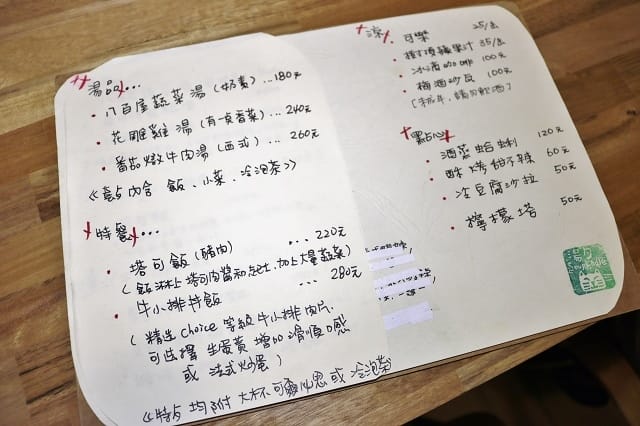 湯品...
八百屋蔬菜湯(奶素)...180元
花雕雞湯(有一夜香菜)...240元
番茄燉牛肉湯(西式)...260元
《套內含 飯、小菜、冷泡茶》
特餐...
塔可飯(豬肉) ...220元
(飯淋上塔可肉醬和起士,加上大量蔬菜)
牛小排丼飯 ...280元
(精選choice等級牛小排肉片
可選擇 生蛋黃 增加滑順口感
或 法式炒蛋)
《特 均附 或 冷泡茶
涼
可樂 25/
蘋果汁 35/
冰滴咖啡 100元
梅酒沙瓦 100元
(未成年,請勿飲酒)
點心
酒蒸蛤蜊 120元
酥烤甜不辣 60元
冷豆腐沙拉 50元
檸檬塔 50元